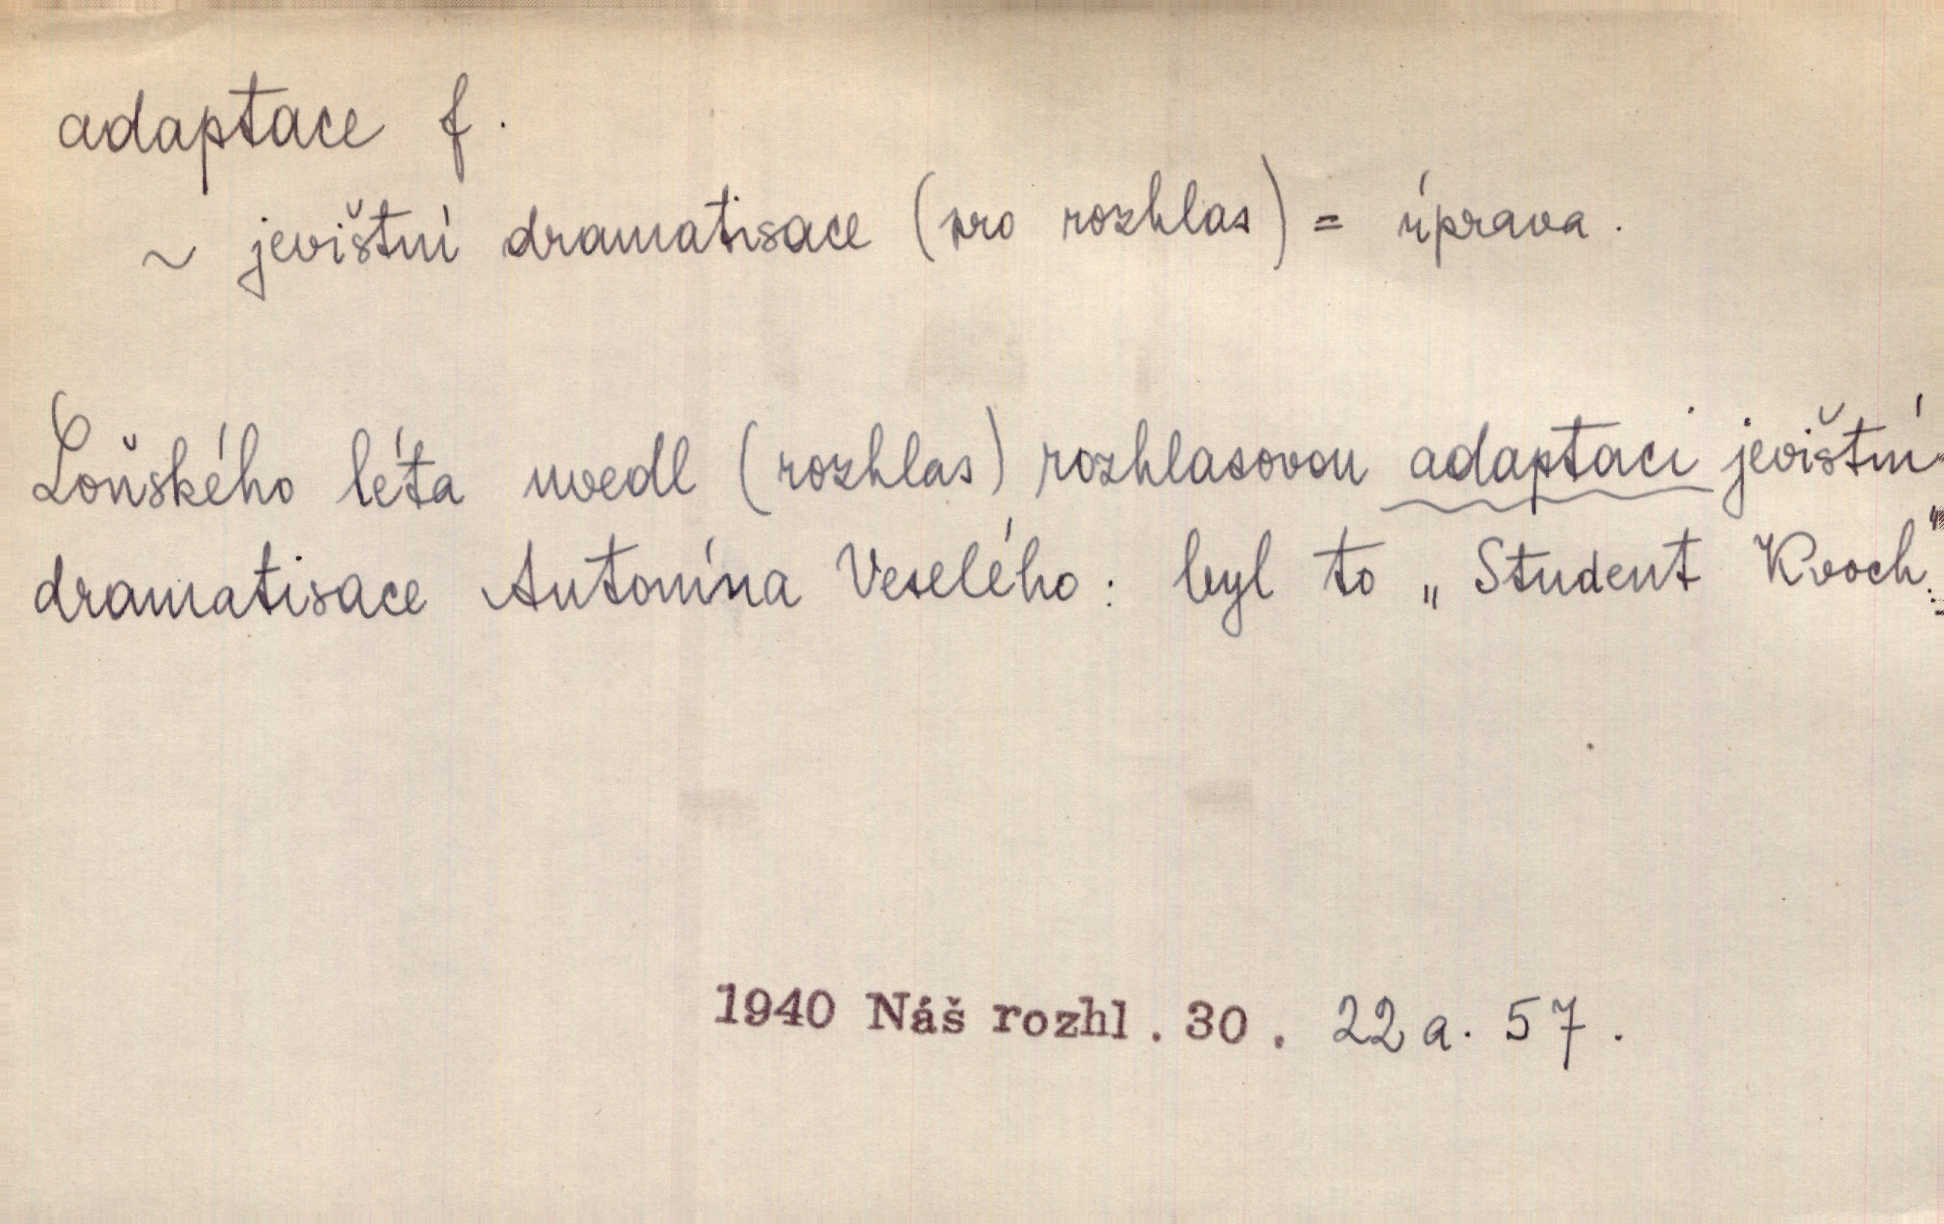 adaptace f.
~ jevištní dramatisace (pro rozhlas) = úprava.
Loňského léta uvedl (rozhlas) rozhlasovou adaptaci jevištní
dramatisace Antonína Veselého: byl to „Student Kvoch".
1940 Náš rozhl. 30. 22 a. 57.